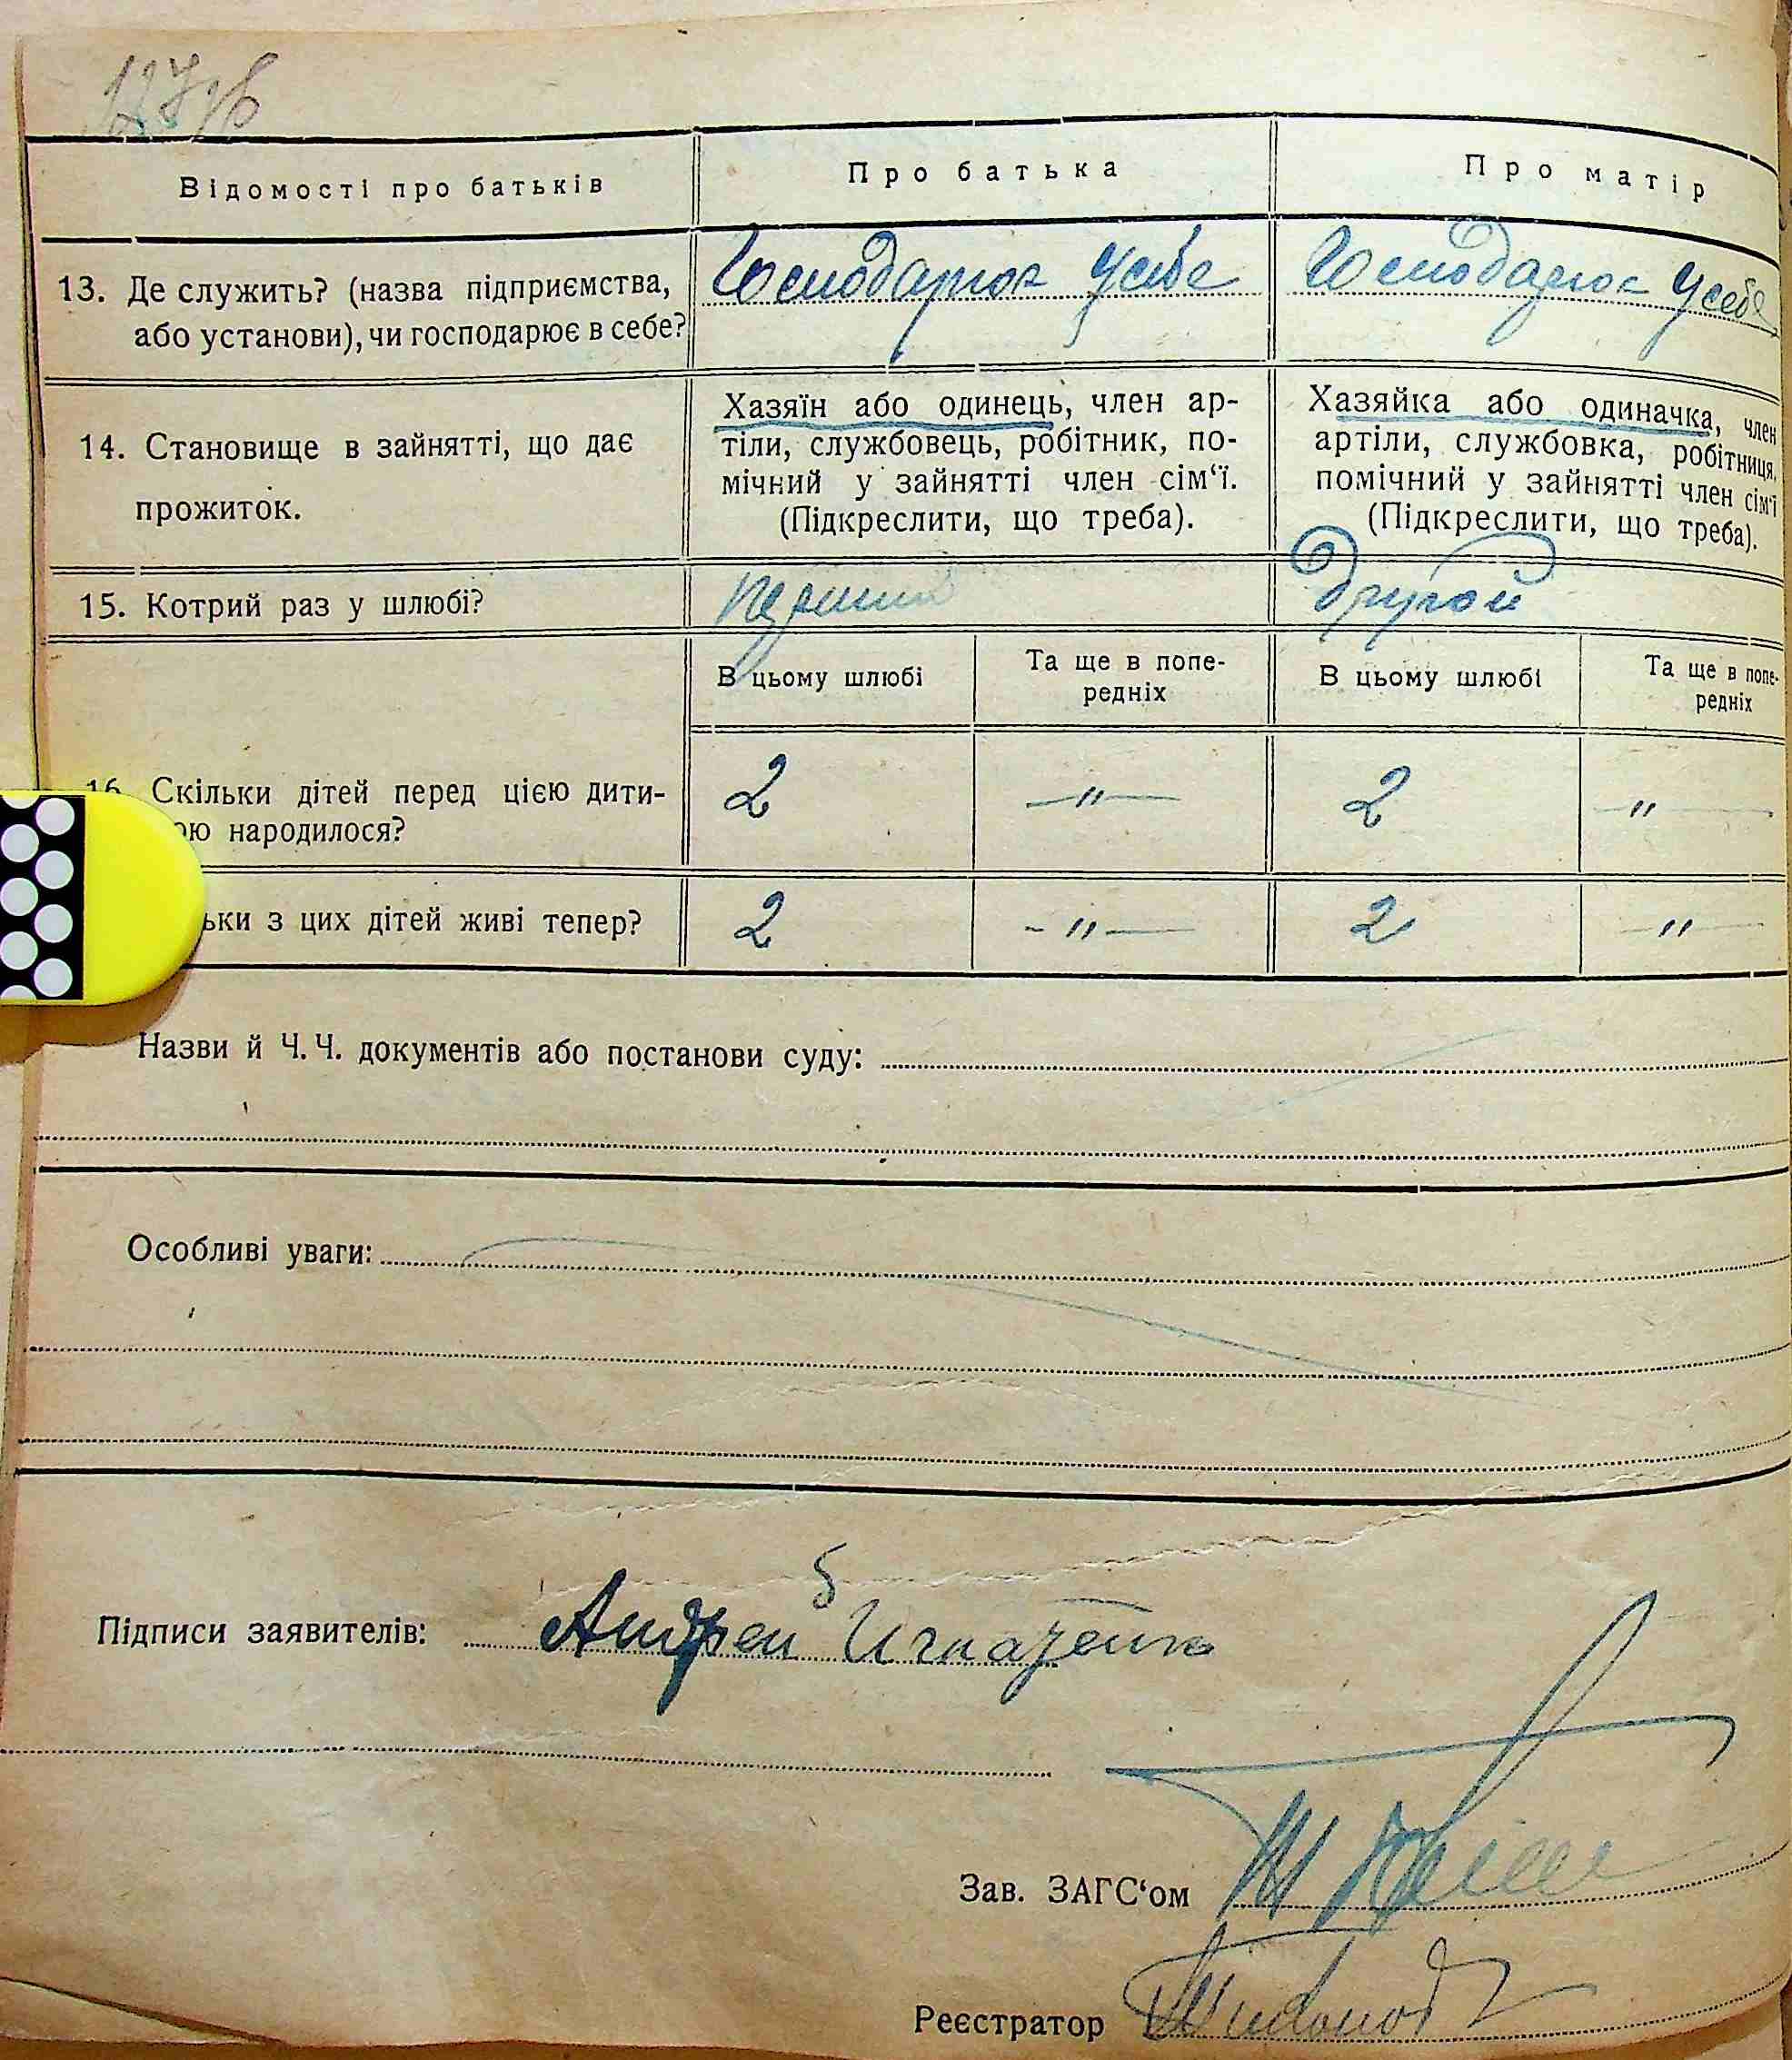 127зв
Відомості про батьків
Про батька
Про матір
13. Де служить? (назва підприємства,
або установи), чи господарює в себе?
Господарює у себе
Господарює у себе
14. Становище в зайнятті, що дає
прожиток.
Хазяїн або одинець, член ар-
тіли, службовець, робітник, по-
мічний у зайнятті член сім‘ї.
(Підкреслити, що треба).
Хазяйка або одиначка, член
артіли, службовка, робітниця,
помічний у зайнятті член сім‘ї
(Підкреслити, що треба).
15. Котрий раз у шлюбі?
перший
другой
В цьому шлюбі
Та ще в попе-
редніх
В цьому шлюбі
Та ще в попе-
редніх
16 Скільки дітей перед цією дити-
ою народилося?
2
—"—
2
—"—
ьки з цих дітей живі тепер?
2
—"—
2
—"—
Назви й Ч.Ч. документів або постанови суду:
Особливі уваги:
Підписи заявителів: Андрей Игнатенко
Зав. ЗАГС‘ом
Реєстратор